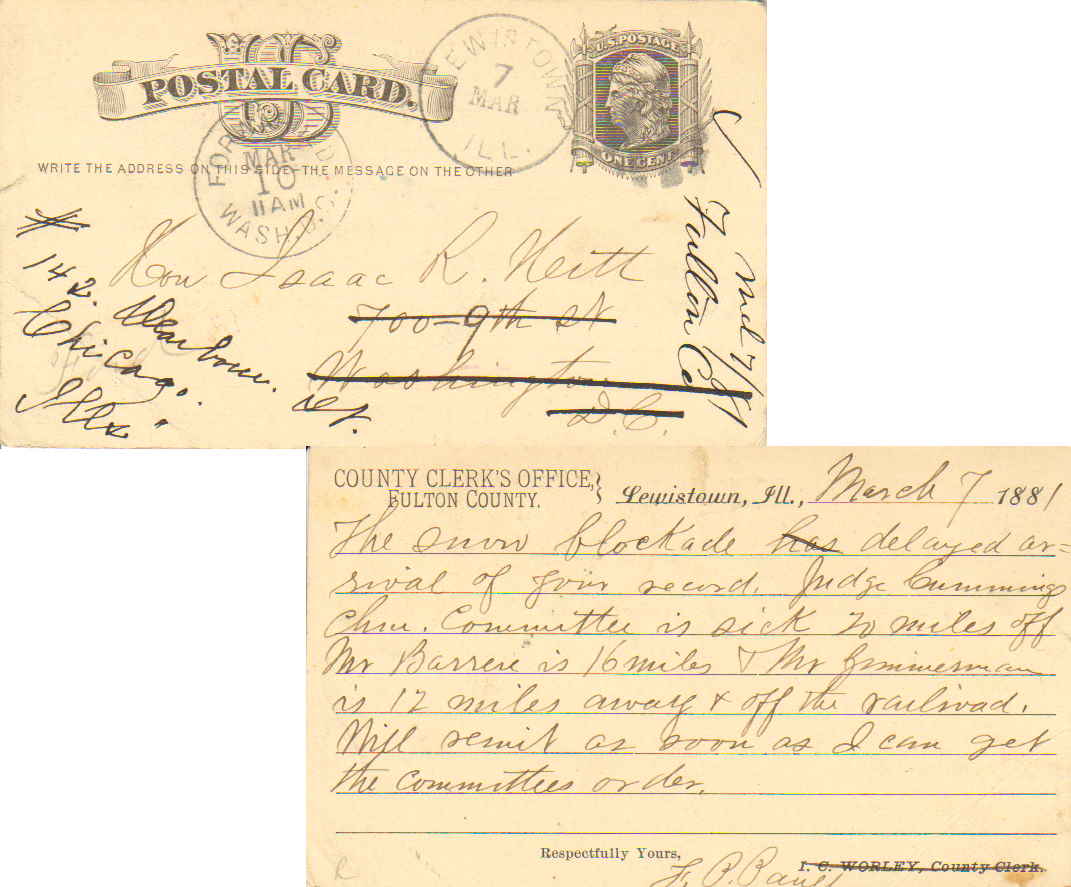 POSTAL CARD.
U.S. POSTAGE
ONE CENT
LEWISTOWN
7
MAR
ILL.
WRITE THE ADDRESS ON THIS SIDE - THE MESSAGE ON THE OTHER
MAR
10
11 AM
WASH. D.C.
Hon Isaac R. Hitt
700 - 9th St
Washington
D.C.
142. Dearborn.
St.
Chicago.
Ills
Fulton Co
COUNTY CLERK'S OFFICE,
FULTON COUNTY.
Lewistown, Ill., March 7 1881
The snow blockade has delayed ar=
rival of your record. Judge Cummings
Chm. Committee is sick 20 miles off
Mr Barrere is 16 miles & Mr Zimmerman
is 12 miles away & off the railroad.
Will remit as soon as I can get
the committees order.
Respectfully Yours,
I. C. WORLEY, County Clerk.